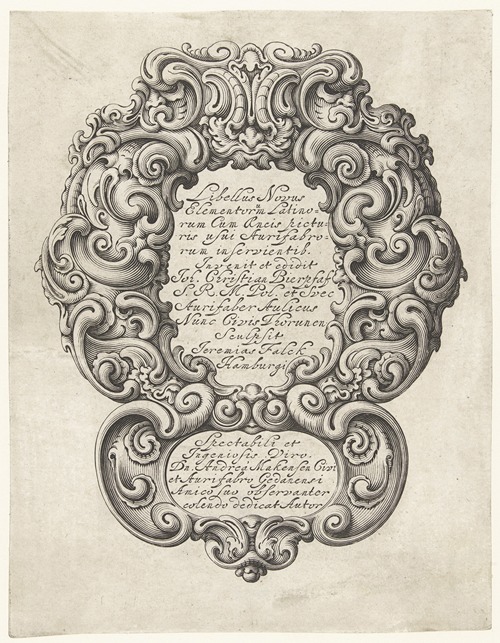 Libellus Novus
Elementorum Latino-
rum Cum Uncis pictu-
ris usui Aurifabro-
rum inservientib.
Invenit et edidit
Joh Christian Bierpfaf
S. R. M. Pol. et Svec
Aurifaber Aulicus
Nunc Civis Thorunen
Sculpsit
Jeremias Falck
Hamburgi
Spectabili et
Ingeniosis Viro.
Dn. Andrea Makensen Civi
et Aurifabro Gedanensi
Amico suo observanter
colendo dedicat Autor